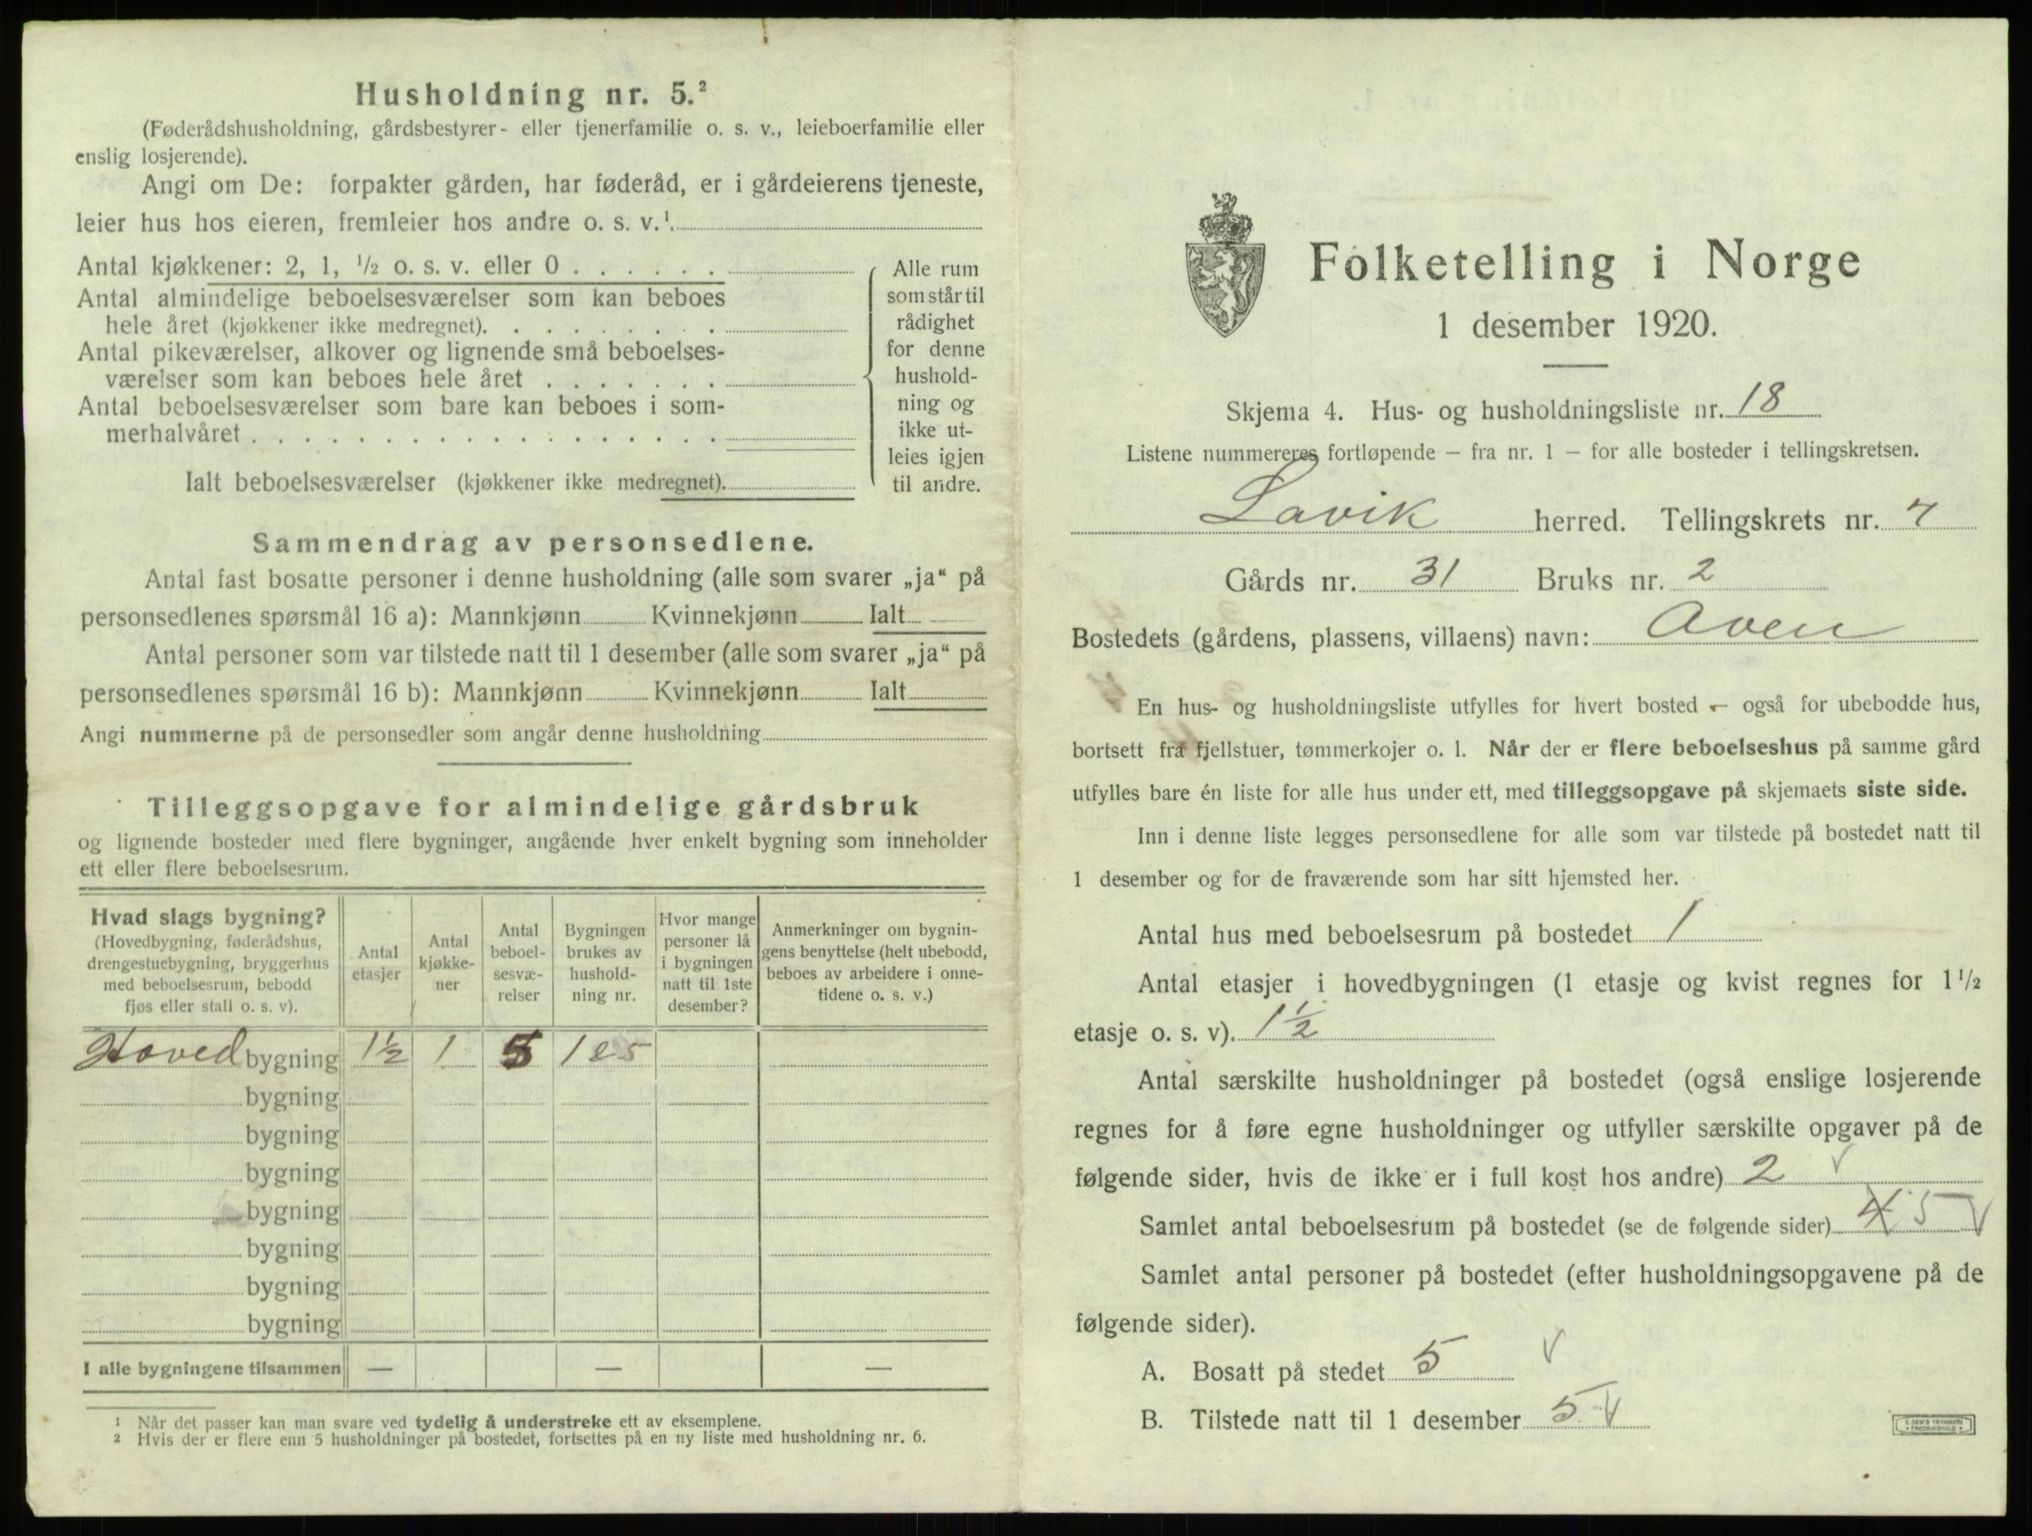 Husholdning nr. 5.²
(Føderådshusholdning, gårdsbestyrer- eller tjenerfamilie o. s. v., leieboerfamilie eller
enslig losjerende).
Angi om De: forpakter gården, har føderåd, er i gårdeierens tjeneste,
leier hus hos eieren, fremleier hos andre o. s. v.¹
Antal kjøkkener: 2, 1, ½ o. s. v. eller 0 . . . . . .
Antal almindelige beboelsesværelser som kan beboes
hele året (kjøkkener ikke medregnet). . . . . . . . .
Antal pikeværelser, alkover og lignende små beboelses-
værelser som kan beboes hele året . . . . . . .
Antal beboelsesværelser som bare kan beboes i som-
merhalvåret . . . . . . . . . . . . . . . . . .
Ialt beboelsesværelser (kjøkkener ikke medregnet).
Alle rum
som står til
rådighet
for denne
hushold-
ning og
ikke ut-
leies igjen
til andre.
Sammendrag av personsedlene.
Antal fast bosatte personer i denne husholdning (alle som svarer „ja“ på
personsedlenes spørsmål 16 a): Mannkjønn Kvinnekjønn Ialt
Antal personer som var tilstede natt til 1 desember (alle som svarer „ja“ på
personsedlenes spørsmål 16 b): Mannkjønn Kvinnekjønn Ialt
Angi nummerne på de personsedler som angår denne husholdning
Tilleggsopgave for almindelige gårdsbruk
og lignende bosteder med flere bygninger, angående hver enkelt bygning som inneholder
ett eller flere beboelsesrum.
Hvad slags bygning?
(Hovedbygning, føderådshus,
drengestuebygning, bryggerhus
med beboelsesrum, bebodd
fjøs eller stall o. s. v).
Antal
etasjer
Antal
kjøkke-
ner
Antal
beboel-
sesvæ-
relser
Bygningen
brukes av
hushold-
ning nr.
Hvor mange
personer lå
i bygningen
natt til 1ste
desember?
Anmerkninger om bygnin-
gens benyttelse (helt ubebodd,
beboes av arbeidere i onne-
tidene o. s. v.)
Hoved bygning 1½ 1 5
bygning
bygning
bygning
bygning
bygning
bygning
bygning
I alle bygningene tilsammen — — —
¹ Når det passer kan man svare ved tydelig å understreke ett av eksemplene.
² Hvis der er flere enn 5 husholdninger på bostedet, fortsettes på en ny liste med husholdning nr. 6.
Folketelling i Norge
1 desember 1920.
Skjema 4. Hus- og husholdningsliste nr. 18
Listene nummereres fortløpende – fra nr. 1 – for alle bosteder i tellingskretsen.
Lavik herred. Tellingskrets nr. 7
Gårds nr. 31 Bruks nr. 2
Bostedets (gårdens, plassens, villaens) navn: Aven
En hus- og husholdningsliste utfylles for hvert bosted – også for ubebodde hus,
bortsett fra fjellstuer, tømmerkojer o. l. Når der er flere beboelseshus på samme gård
utfylles bare én liste for alle hus under ett, med tilleggsopgave på skjemaets siste side.
Inn i denne liste legges personsedlene for alle som var tilstede på bostedet natt til
1 desember og for de fraværende som har sitt hjemsted her.
Antal hus med beboelsesrum på bostedet 1
Antal etasjer i hovedbygningen (1 etasje og kvist regnes for 1½
etasje o. s. v). 1½
Antal særskilte husholdninger på bostedet (også enslige losjerende
regnes for å føre egne husholdninger og utfyller særskilte opgaver på de
følgende sider, hvis de ikke er i full kost hos andre) 2 v
Samlet antal beboelsesrum på bostedet (se de følgende sider) 4 5 v
Samlet antal personer på bostedet (efter husholdningsopgavene på de
følgende sider).
A. Bosatt på stedet 5 v
B. Tilstede natt til 1 desember 5 v